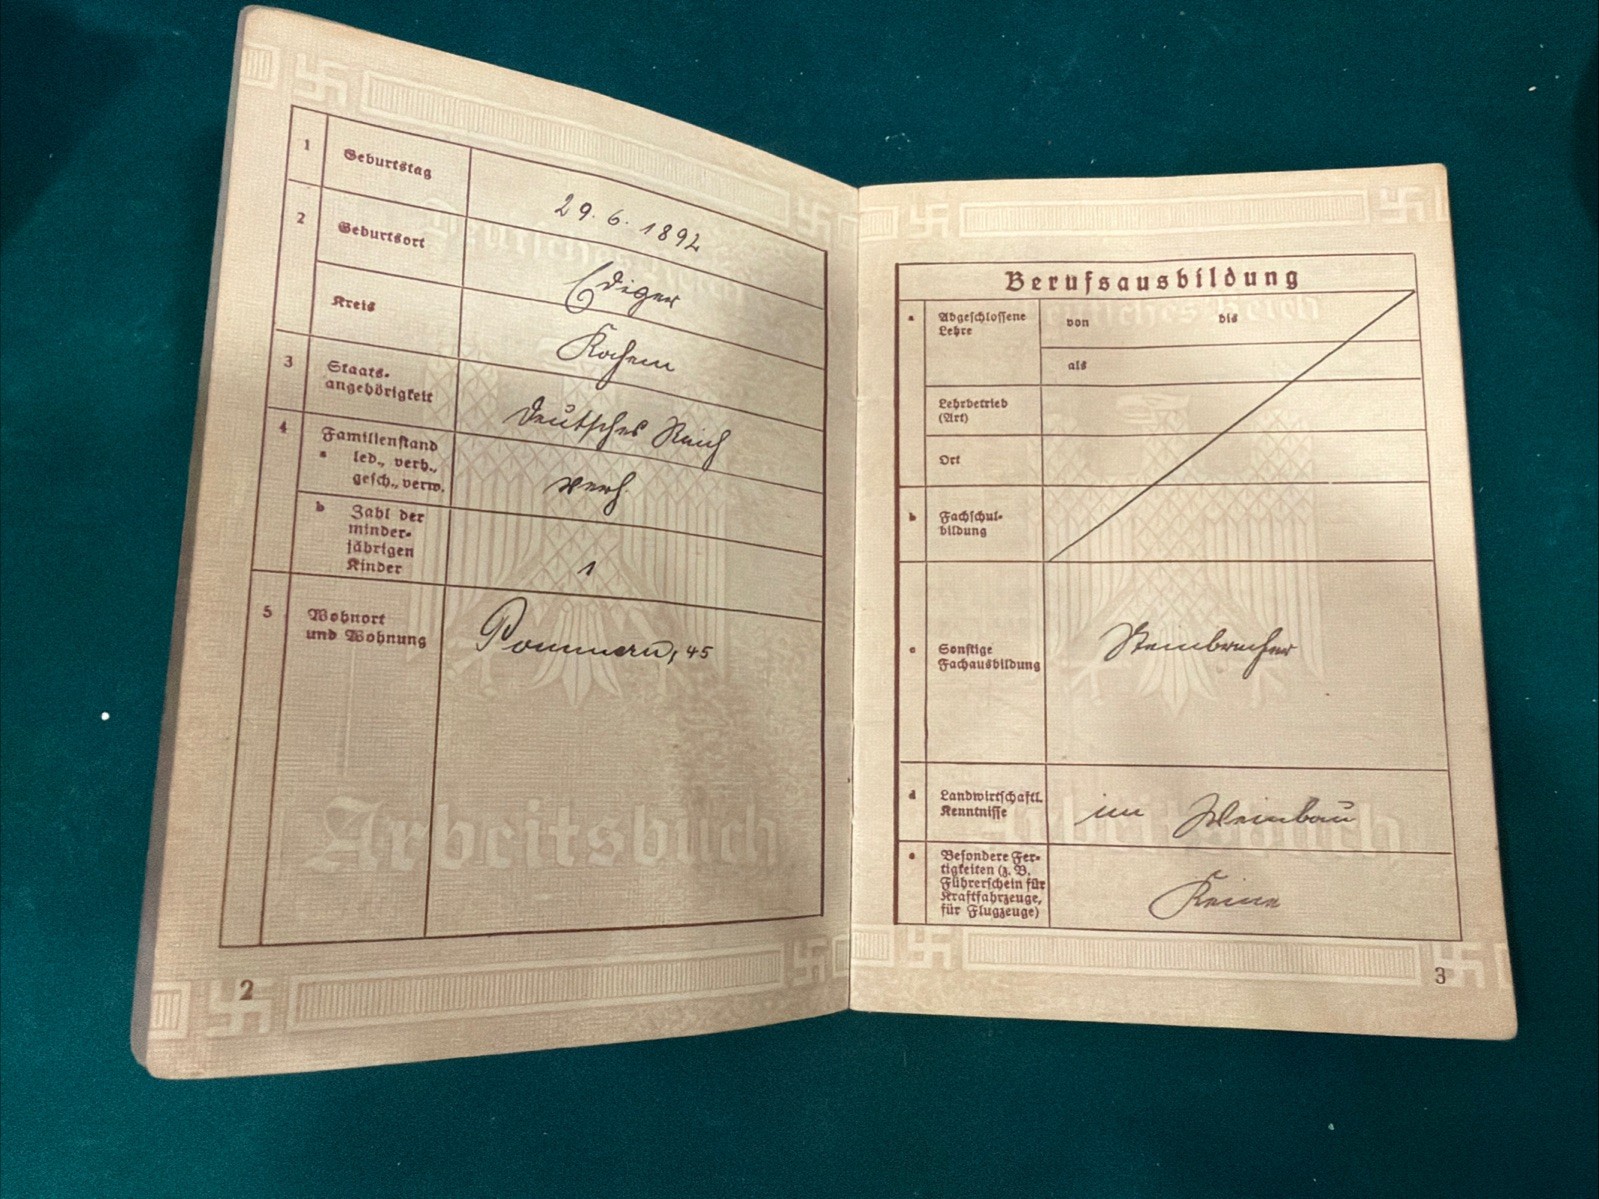 1 Geburtstag 29. 6. 1892
2 Geburtsort Ediger
Kreis Kochem
3 Staats-
angehörigkeit Deutsches Reich
4 Familienstand
a led., verh.,
gesch., verw. verh.
b Zahl der
minder-
jährigen
Kinder 1
5 Wohnort
und Wohnung Pommern, 45
Arbeitsbuch
2
Berufsausbildung
a Abgeschlossene
Lehre von bis
als
Lehrbetrieb
(Art)
Ort
b Fachschul-
bildung
c Sonstige
Fachausbildung Steinbrucher
d Landwirtschaftl.
Kenntnisse im Weinbau
e Besondere Fer-
tigkeiten (z. B.
Führerschein für
Kraftfahrzeuge,
für Flugzeuge) Keine
Deutsches Reich
Arbeitsbuch
3